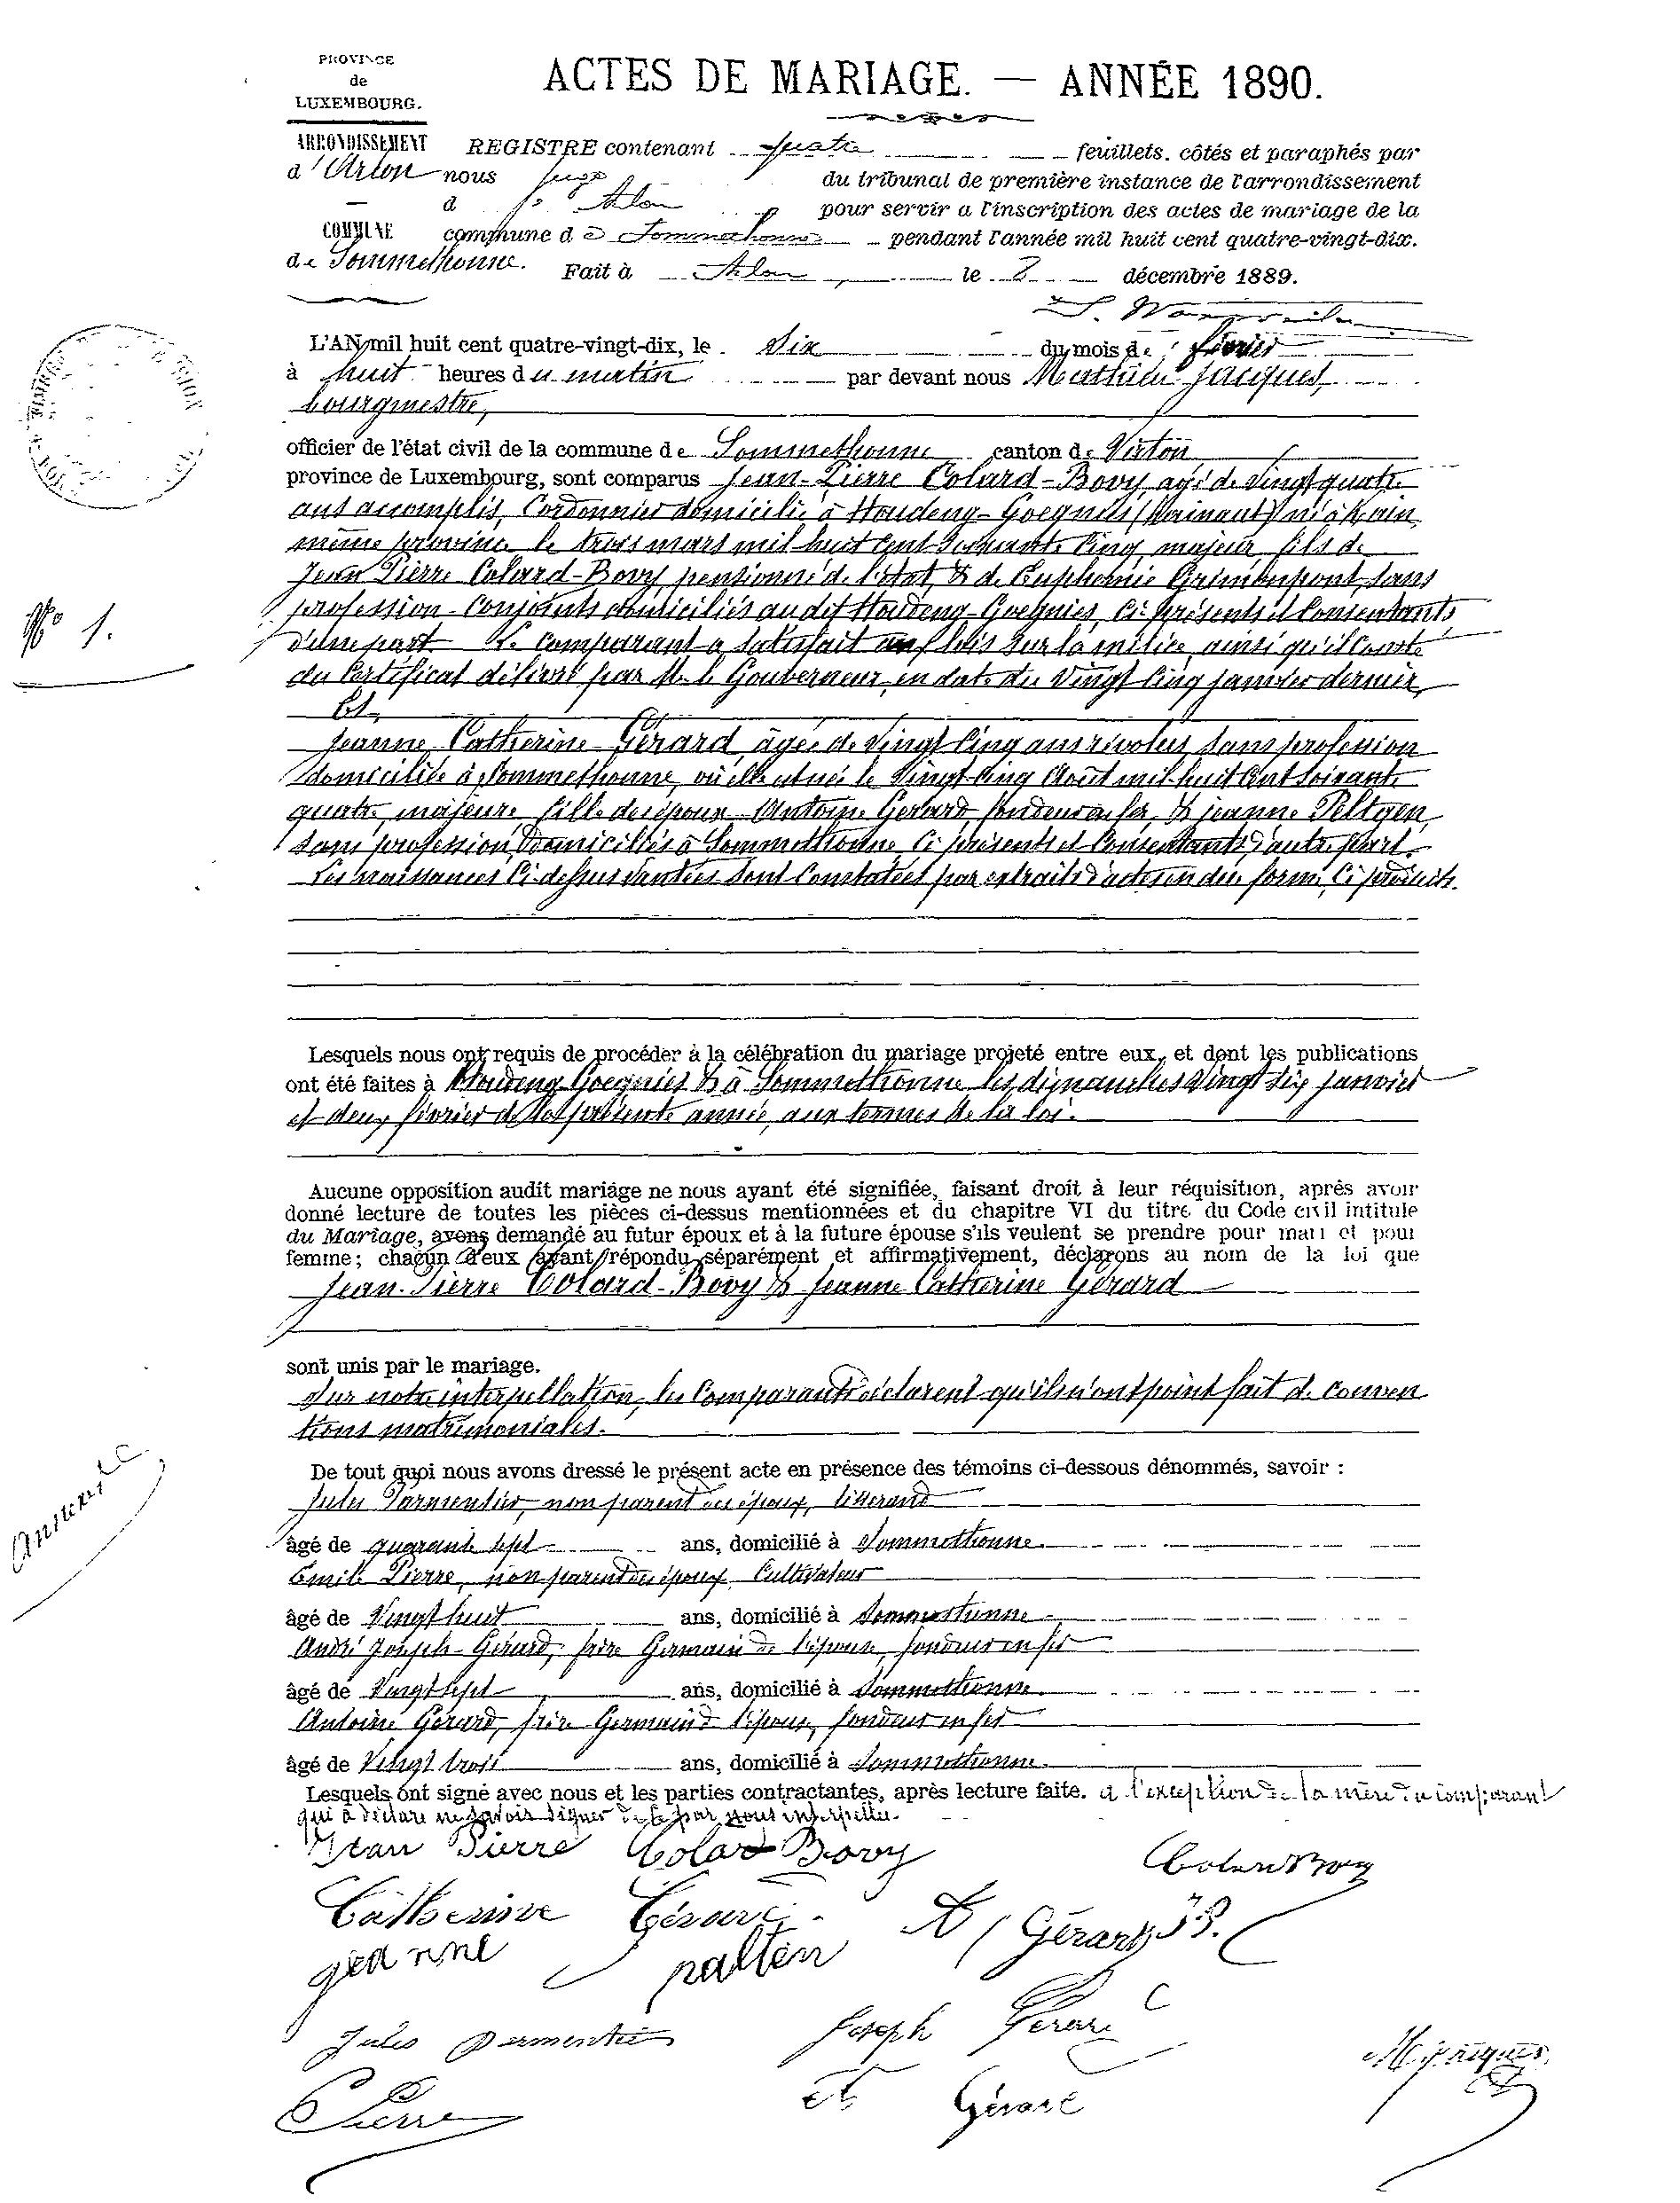 PROVINCE
de
LUXEMBOURG.
ACTES DE MARIAGE. — ANNÉE 1890.
ARRONDISSEMENT
d'Arlon
COMMUNE
de Sommethonne.
REGISTRE contenant quatre feuillets. côtés et paraphés par
nous juge du tribunal de première instance de l'arrondissement
d Arlon pour servir a l'inscription des actes de mariage de la
commune de Sommethonne pendant l'année mil huit cent quatre-vingt-dix.
Fait à Arlon le 2 décembre 1889.
L'AN mil huit cent quatre-vingt-dix, le dix du mois de février
à huit heures du matin par devant nous Mathieu Jacques,
bourgmestre,
officier de l'état civil de la commune de Sommethonne canton de Virton
province de Luxembourg, sont comparus Jean-Pierre Colard-Bovy, agé de vingt quatre
ans accomplis, Cordonnier domicilié à Houdeng-Goegnies (Hainaut) né à Kain,
même province le trois mars mil huit cent soixante cinq, majeur fils de
Jean Pierre Colard-Bovy, pensionné de l'état, & de Euphémie Grimonpont, sans
profession conjoints domiciliés au dit Houdeng-Goegnies, ci présents et consentants
d'une part. Le comparant a satisfait aux lois sur la milice, ainsi qu'il conste
du certificat délivré par Mr le Gouverneur, en date du vingt cinq janvier dernier,
Et,
Jeanne Catherine Gérard, âgée de vingt cinq ans révolus, sans profession
domiciliée à Sommethonne, où elle est née le vingt cinq Août mil huit cent soixante
quatre, majeure, fille des époux Antoine Gérard fondeur en fer, & Jeanne Peltgen,
sans profession, domiciliés à Sommethonne, ci présents et consentants, d'autre part.
Les naissances ci-dessus vantées sont constatées par extraits d'actes en due forme, ci produits.
N° 1.
Lesquels nous ont requis de procéder à la célébration du mariage projeté entre eux, et dont les publications
ont été faites à Houdeng-Goegnies & à Sommethonne les dimanches vingt six janvier
et deux février de la présente année, aux termes de la loi.
Aucune opposition audit mariage ne nous ayant été signifiée, faisant droit à leur réquisition, après avoir
donné lecture de toutes les pièces ci-dessus mentionnées et du chapitre VI du titre du Code civil intitule
du Mariage, avons demandé au futur époux et à la future épouse s'ils veulent se prendre pour mari et pour
femme; chacun d'eux ayant répondu séparément et affirmativement, déclarons au nom de la loi que
Jean-Pierre Colard-Bovy & Jeanne Catherine Gérard
sont unis par le mariage.
Sur notre interpellation, les comparants déclarent qu'ils n'ont point fait de conven
tions matrimoniales.
Annexe
De tout quoi nous avons dressé le présent acte en présence des témoins ci-dessous dénommés, savoir :
Jules Parmentier, non parent des époux, tisserand
âgé de quarante sept ans, domicilié à Sommethonne.
Emile Pierre, non parent des époux, Cultivateur
âgé de vingt huit ans, domicilié à Sommethonne
André Joseph Gérard, frère Germain de l'épouse, fondeur en fer
âgé de vingt sept ans, domicilié à Sommethonne.
Antoine Gérard, frère Germain de l'épouse, fondeur en fer
âgé de vingt trois ans, domicilié à Sommethonne.
Lesquels ont signé avec nous et les parties contractantes, après lecture faite. a l'exception de la mère du comparant
qui a déclaré ne savoir signer de ce par nous interpellée.
Jean Pierre Colard Bovy Colard Bovy
Catherine Gérard A Gérard
geanne palten
Jules parmentier Joseph Gérard
M. Jacques
E Pierre At Gérard